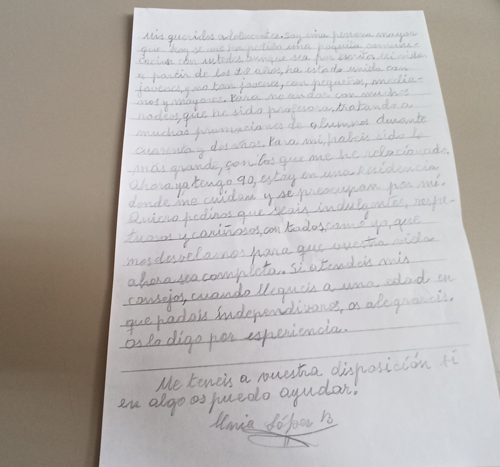 Mis queridos adolescentes. Soy una persona mayor
que hoy se me ha pedido una pequeña comuni-
cación con ustedes aunque sea por escrito. Mi vida
a partir de los 18 años, ha estado unida con
jóvenes, y no tan jóvenes, con pequeños, media-
nos y mayores. Para no andar con muchos
rodeos, que he sido profesora, tratando a
muchas promociones de alumnos durante
cuarenta y dos años. Para mí, habéis sido lo
más grande, con los que me he relacionado.
Ahora ya tengo 90, estoy en una Residencia
donde me cuidan y se preocupan por mí.
Quiero pediros que seais indulgentes, respe-
tuosos y cariñosos, con todos, como ya, que
nos desvelamos para que vuestra vida
ahora sea completa. Si atendeis mis
consejos, cuando llegueis a una edad en
que podais independizaros, os alegrareis.
Os lo digo por esperiencia.
Me teneis a vuestra disposición si
en algo os puedo ayudar.
López B